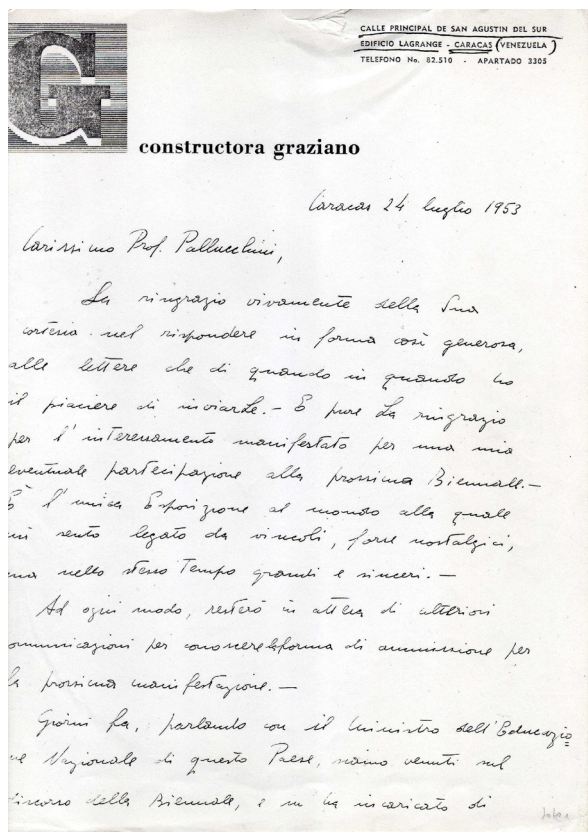 CALLE PRINCIPAL DE SAN AGUSTIN DEL SUR
EDIFICIO LAGRANGE - CARACAS (VENEZUELA)
TELEFONO No. 82.510 - APARTADO 3305
G
constructora graziano
Caracas 24 luglio 1953
Carissimo Prof. Pallucchini,
La ringrazio vivamente della Sua
cortesia nel rispondere in forma così generosa,
alle lettere che di quando in quando ho
il piacere di inviarLe.- E pure La ringrazio
per l'interessamento manifestato per una mia
eventuale partecipazione alla prossima Biennale.-
È l'unica Esposizione al mondo alla quale
mi sento legato da vincoli, forse nostalgici,
ma nello stesso tempo grandi e sinceri.-
Ad ogni modo, resterò in attesa di ulteriori
comunicazioni per conoscere la forma di ammissione per
la prossima manifestazione.-
Giorni fa, parlando con il Ministro dell'Educazio=
ne Nazionale di questo Paese, siamo venuti sul
discorso della Biennale, e m'ha incaricato di